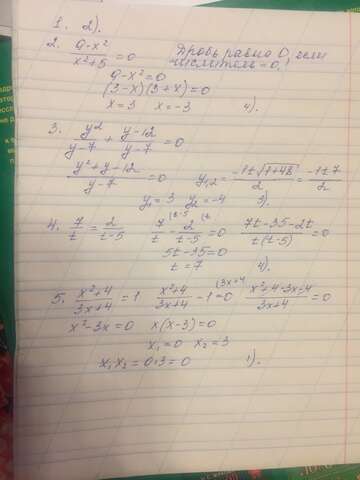 1. 2).
2. (9-x²)/(x²+5) = 0 Дробь равно 0, если
числитель = 0.
9-x²=0
(3-x)(3+x)=0
x=3 x=-3 4).
3. y²/(y-7) + (y-12)/(y-7) = 0
(y²+y-12)/(y-7) = 0 y₁,₂ = (-1±√(1+48))/2 = (-1±7)/2
y₁=3 y₂=-4 3).
4. 7/t = 2/(t-5) 7/t - 2/(t-5) = 0 (7t-35-2t)/(t(t-5)) = 0
5t-35=0
t=7 4).
5. (x²+4)/(3x+4) = 1 (x²+4)/(3x+4) - 1 = 0 (x²+4-3x-4)/(3x+4) = 0
x²-3x=0 x(x-3)=0
x₁=0 x₂=3
x₁x₂=0·3=0 1).